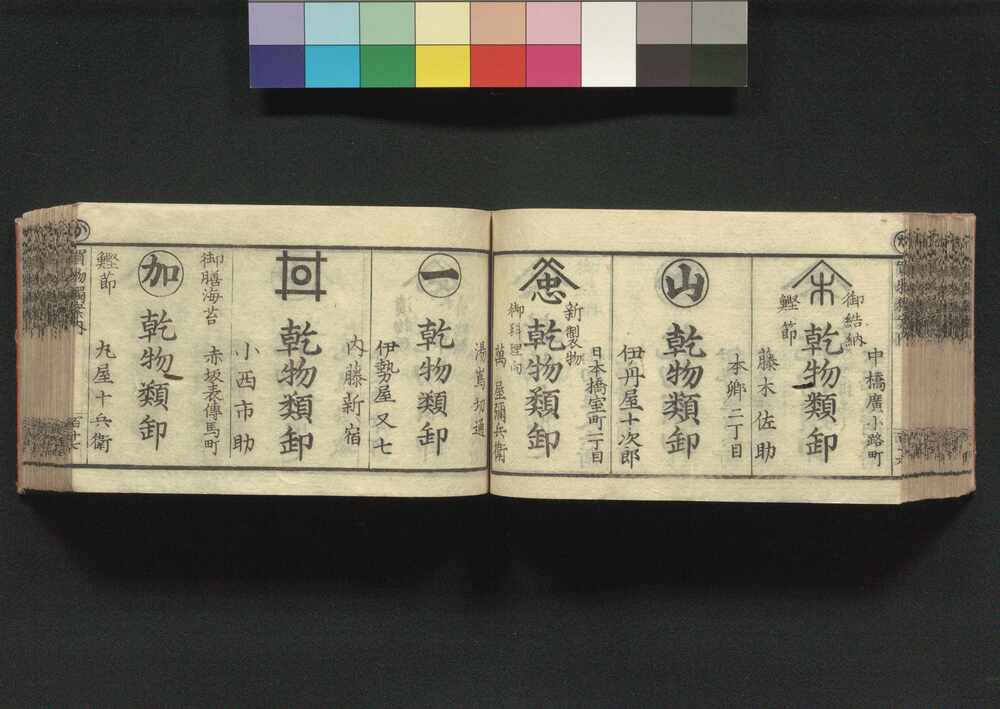 中橋廣小路町
御結納
木
乾物類卸
鰹節
藤木佐助
本郷二丁目
山
乾物類卸
伊丹屋十次郎
日本橋室町一丁目
新製物
乾物類卸
御料理向
萬屋彌兵衛
湯嶌切通
一
乾物類卸
伊勢屋又七
内藤新宿
乾物類卸
小西市助
赤坂表傳馬町
御膳海苔
加
乾物類卸
鰹節
丸屋十兵衛
か
買物獨案内